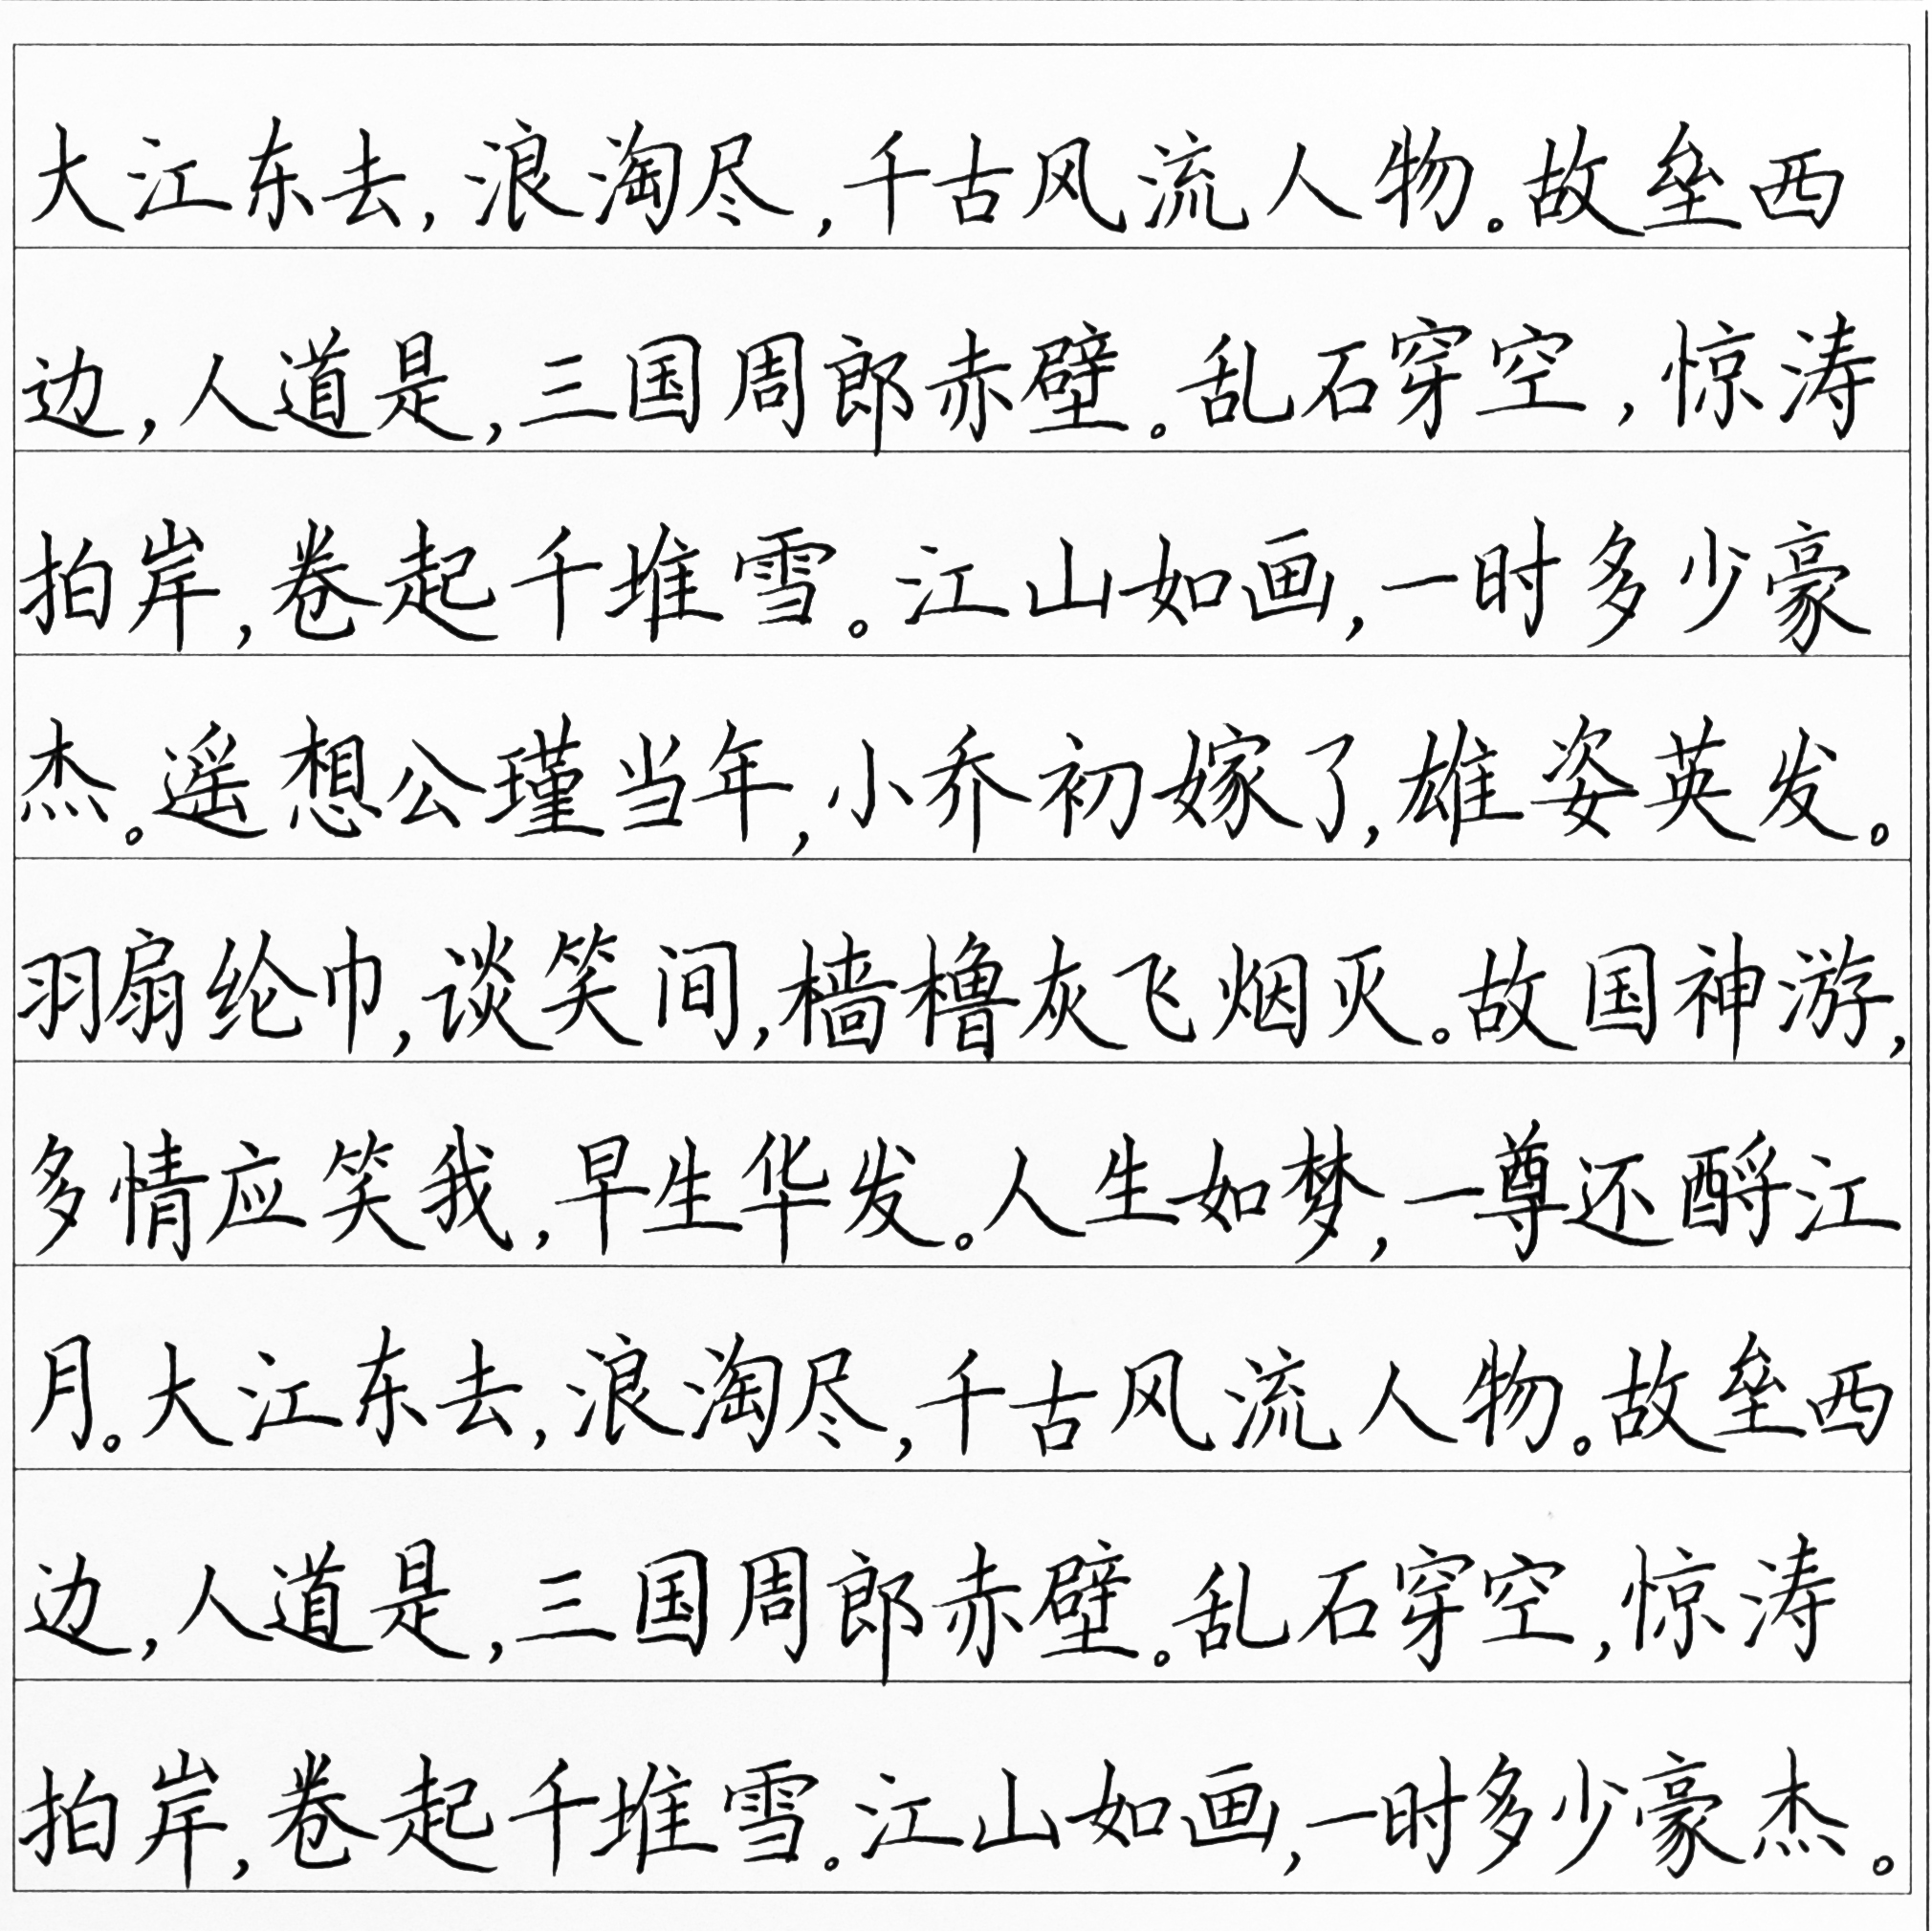 大江东去,浪淘尽,千古风流人物。故垒西
边,人道是,三国周郎赤壁。乱石穿空,惊涛
拍岸,卷起千堆雪。江山如画,一时多少豪
杰。遥想公瑾当年,小乔初嫁了,雄姿英发。
羽扇纶巾,谈笑间,樯橹灰飞烟灭。故国神游,
多情应笑我,早生华发。人生如梦,一尊还酹江
月。大江东去,浪淘尽,千古风流人物。故垒西
边,人道是,三国周郎赤壁。乱石穿空,惊涛
拍岸,卷起千堆雪。江山如画,一时多少豪杰。